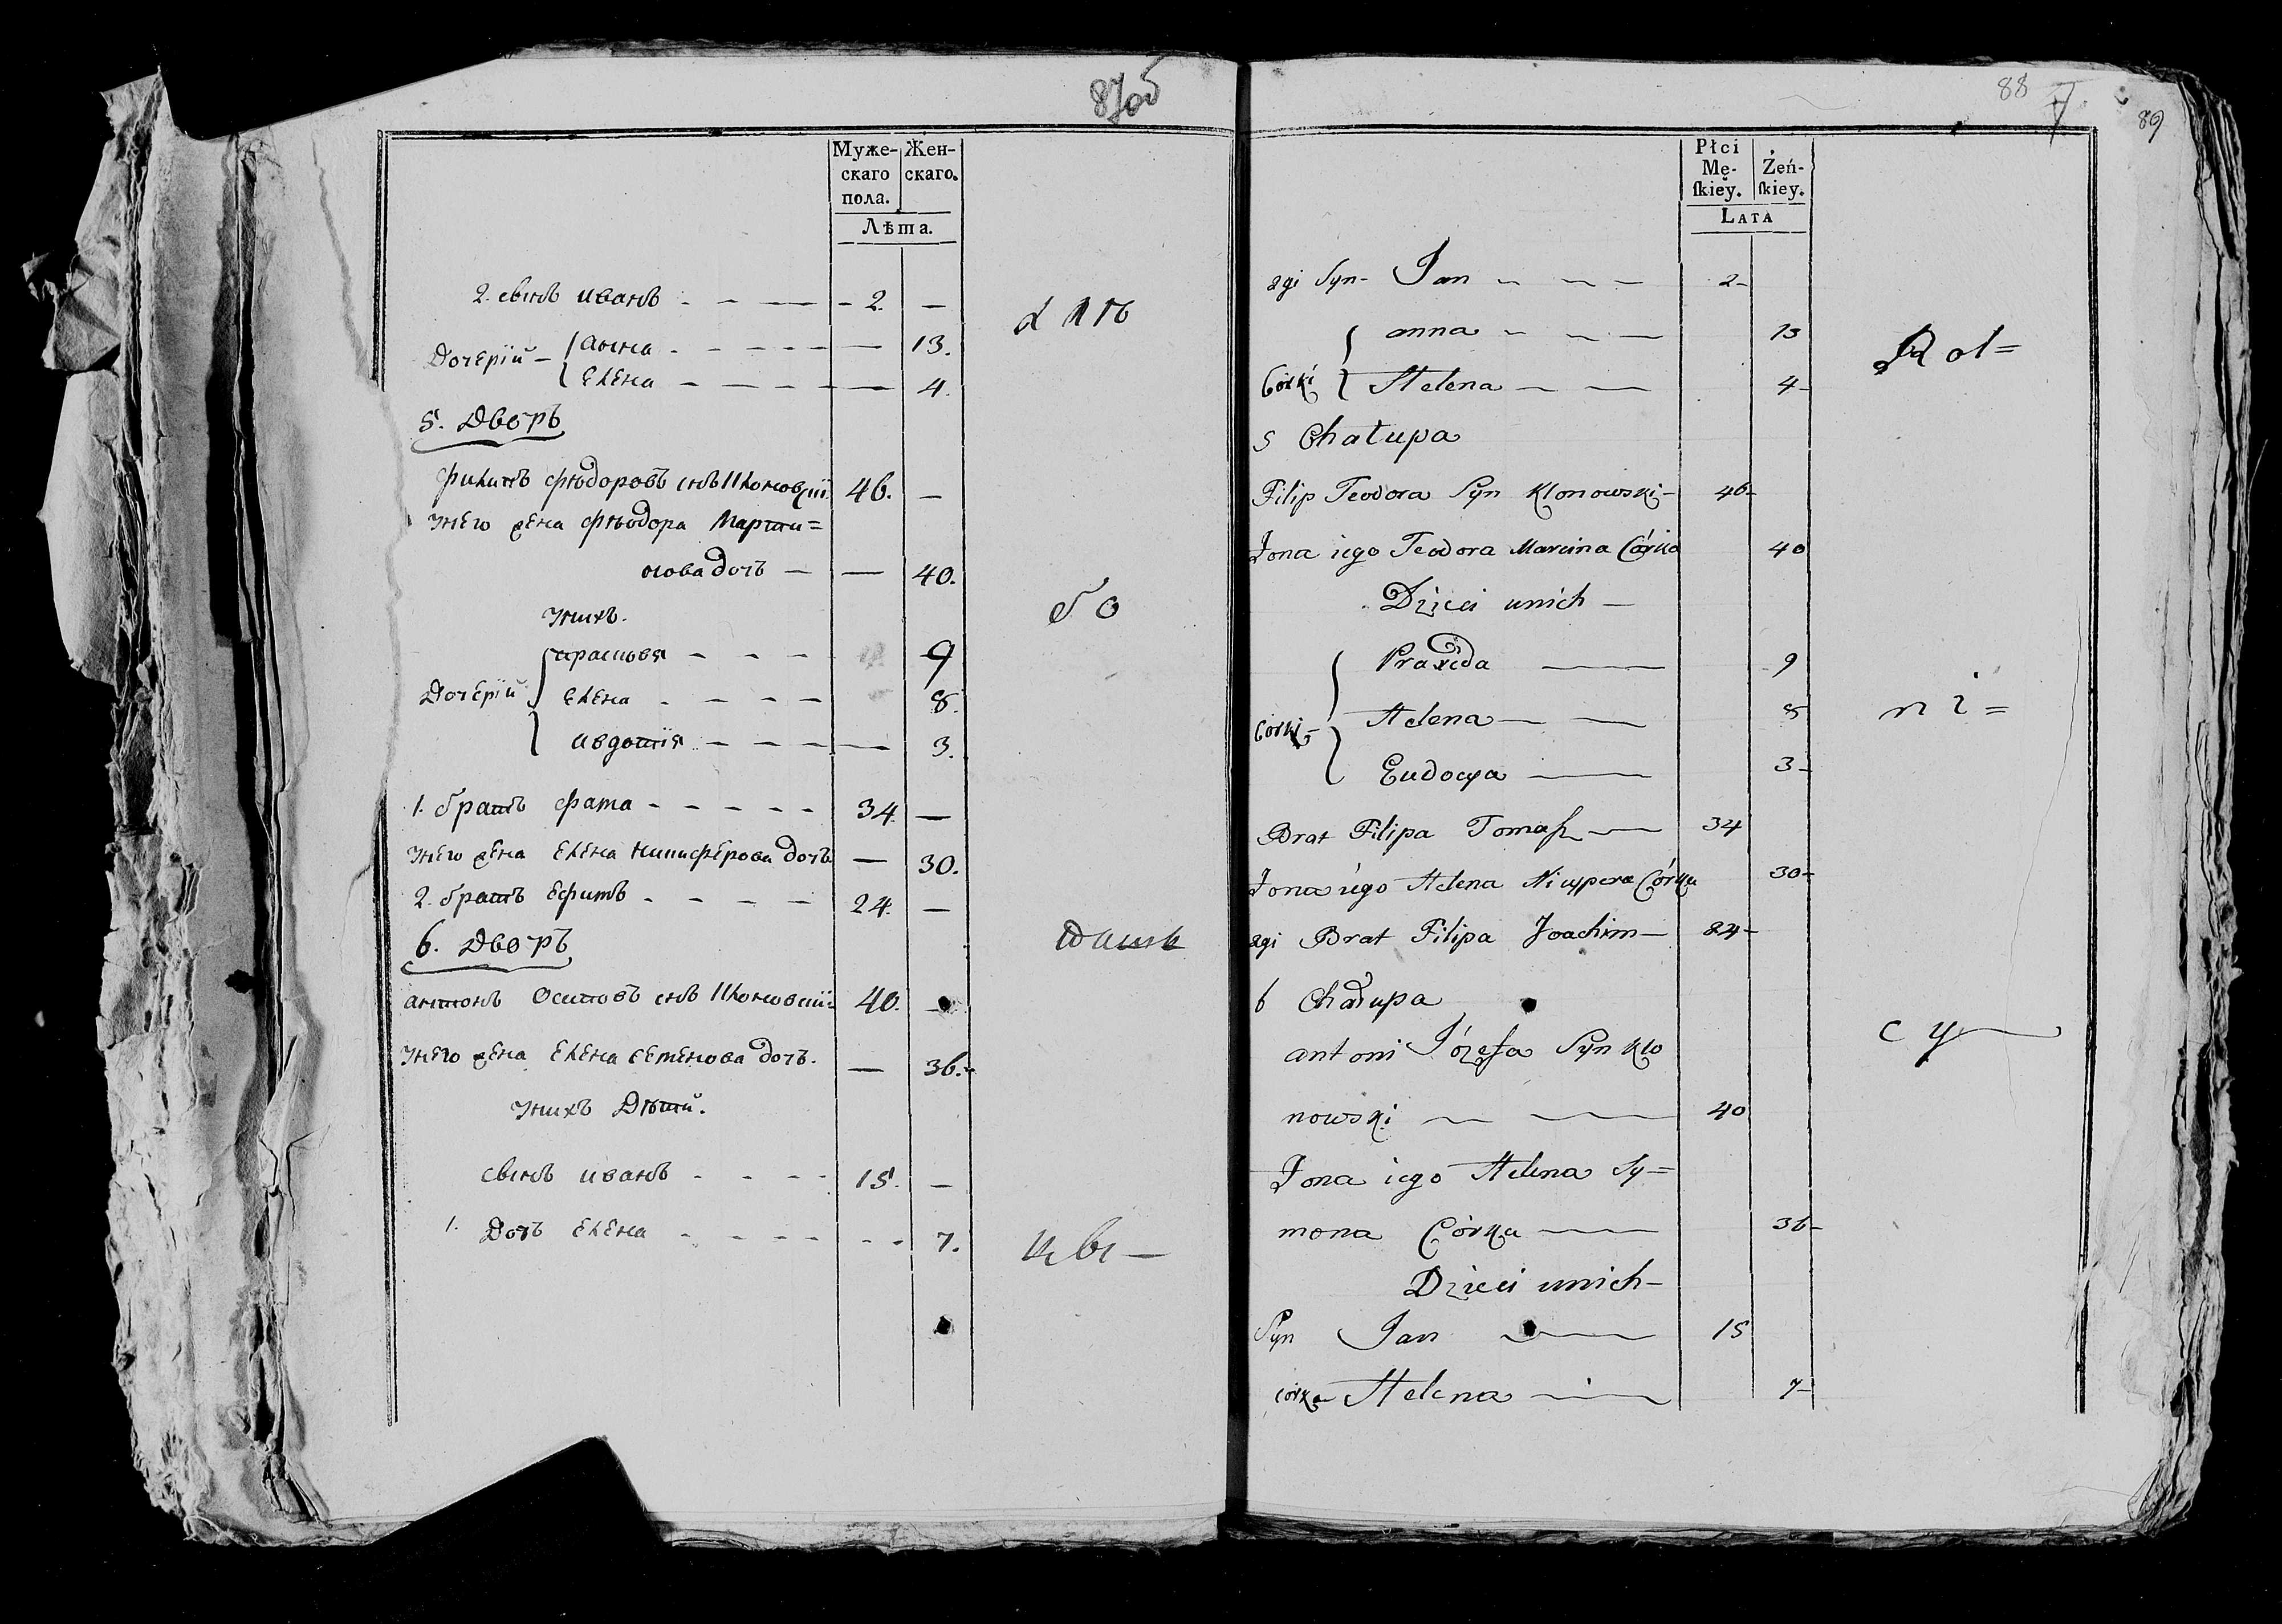 87об
Муже-
скаго
пола.
Жен-
скаго.
Лѣта.
2. сынъ иванъ - - - - 2. —
Дочерїй — { анна - - - - — 13.
елена - - - - — 4.
5. Дворъ
филипъ фѣодоровъ снъ Клоновскїй 46. —
унего жена фѣодора Марти=
нова дочь — — 40.
унихъ.
прасковя - - - 9
Дочерїй { елена - - - - 8.
авдотїя - - - — 3.
1. братъ фама - - - - - 34. —
унего жена елена никифѐрова дочь — 30.
2. братъ ефимъ - - - - 24. —
6. Дворъ
антонъ осиповъ снъ Клоновскїй 40. —
унего жена елена семенова дочь. — 36.
унихъ Дѣтй.
сынъ иванъ - - - - 15. —
1. Дочь елена - - - - - - 7.
бо
цы —
88
89
Płci
Mę-
ſkiey.
Żeń-
ſkiey.
Lata
2gi Syn- Jan — — — 2-
{ anna — — — 13
Córki { Helena — — 4-
5 Chałupa
Filip Teodora Syn Klonowski- 46-
Żona iego Teodora Marcina Córka 40
Dzieci unich —
Praxeda — 9
Córki- { Helena — — 8
Eudocya — 3-
Brat Filipa Tomaſz — 34
Żona iego Helena Nicypera Córka 30-
2gi Brat Filipa Joachim — 24-
6 Chałupa
antoni Józefa Syn Klo
nowski — — 40
Żona iego Helena Sy=
mona Córka — 36-
Dzieci unich-
Syn Jan — 15
córka Helena — 7-
Rol=
ni=
cy